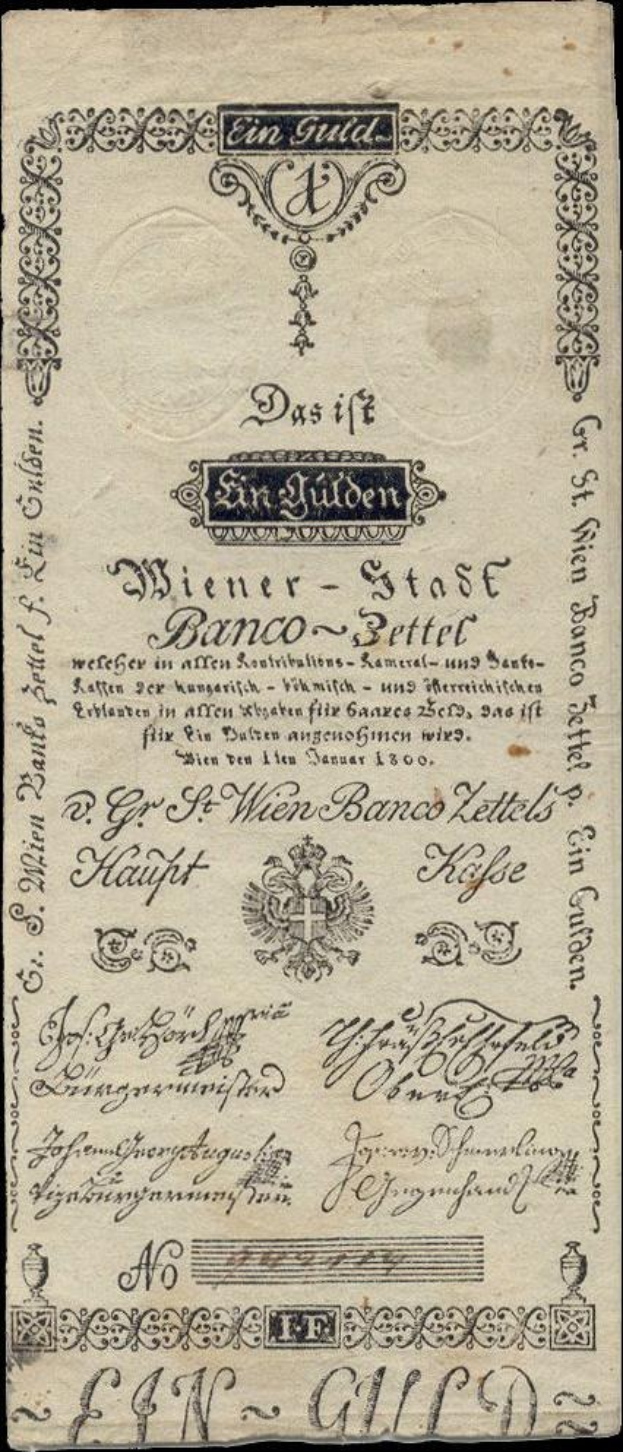 Ein Guld.
1
Das ist
Ein Gulden
Wiener - Stadt
Banco ~ Zettel
welcher in allen Kontributions - Kameral - und Banko-
Kassen der hungarisch - böhmisch - und österreichischen
Erblanden in allen Abgaben für baares Geld, das ist
für Ein Gulden angenohmen wird.
Wien den 1ten Januar 1800.
v. Gr St Wien Banco Zettels
Haupt Kasse
Gr. S. Wien Banko Zettel f. Ein Gulden.
Gr. St. Wien Banco Zettel p. Ein Gulden.
Bürgermeister
Johann Georg Augusti
Vizebürgermeister
No
1·F
~ EIN ~ GULD ~